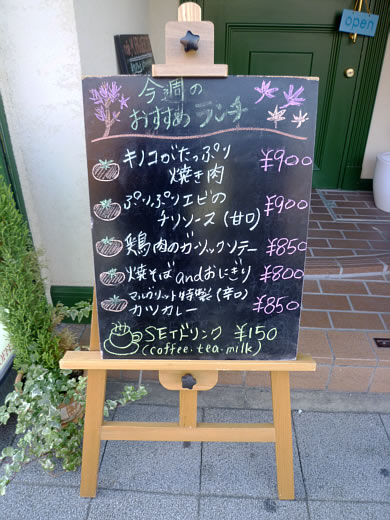 open
今週の
おすすめランチ
キノコがたっぷり
焼き肉 ¥900
ぷりぷりエビの
チリソース(甘口) ¥900
鶏肉のガーリックソテー ¥850
焼そばandおにぎり ¥800
マルガリット特製(辛口)
カツカレー ¥850
SETドリンク ¥150
(coffee・tea・milk)